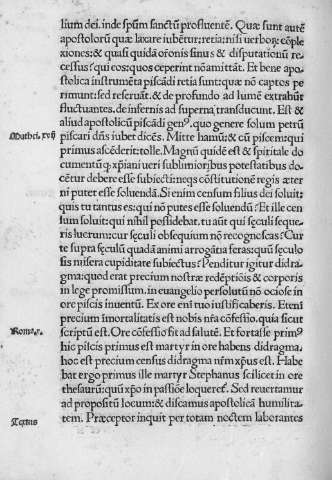 lium dei. inde spūm sanctū profluentē. Quæ sunt autē
apostolorū quæ laxare iubētur, retia: nisi uerborꝝ cōple
xiones: & quasi quidā orōnis sinus & disputationū re
cessus? qui eos: quos ceperint nō amittāt. Et bene apo-
stolica instrumēta piscādi retia sunt: quæ nō captos pe
rimunt: sed reseruāt. & de profundo ad lumē extrahūt
fluctuantes. de infernis ad superna transducunt. Est &
aliud apostolicū piscādi genꝰ. quo genere solum petrū
Mathei. xvij piscari dñs iubet dicēs. Mitte hamū: & cū piscem: qui
primus ascēderit: tolle. Magnū quidē est & spiritale do
cumentū quo xp̄iani ueri sublimioribus potestatibus do
cētur debere esse subiecti: neqs cōstitutionē regis æter
ni putet esse soluendā. Si enim censum filius dei soluit:
quis tu tantus es: qui nō putes esse soluendū? Et ille cen
sum soluit: qui nihil possidebat. tu aūt qui sęculi seque-
ris lucrum: cur sęculi obsequium nō recognoscas? Cur
te supra sęculū quadā animi arrogātia feras: quū sęculo
sis misera cupiditate subiectus? Penditur igitur didra-
gma: quod erat precium nostræ redēptiōis & corporis
in lege promissum. in euangelio persolutū nō ociose in
ore piscis inuentū. Ex ore eni tuo iustificaberis. Eteni
precium imortalitatis est nobis nrā cōfessio. quia sicut
Roma. x. scriptū est. Ore cōfessio fit ad salutē. Et fortasse primꝰ
hic piscis primus est martyr in ore habens didragma.
hoc est precium census didragma nr̄m xp̄us est. Habe
bat ergo primus ille martyr Stephanus scilicet in ore
thesaurū: quū xp̄o in passiōe loqueret. Sed reuertamur
ad propositū locum: & discamus apostolicā humilita-
Textus tem. Præceptor inquit per totam noctem laborantes